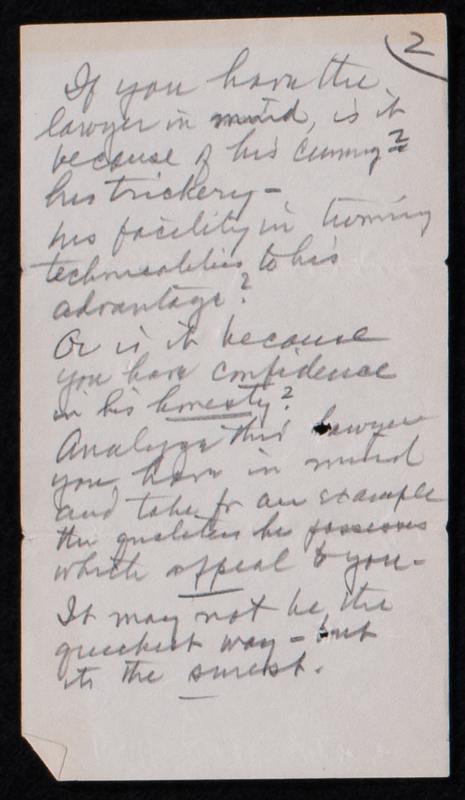 2
If you have the
lawyer in mind, is it
because of his cunning?
his trickery -
his facility in turning
technicalities to his
advantage?
Or is it because
you have confidence
in his honesty?
Analyze this lawyer
you have in mind
and take for an example
the qualities he possesses
which appeal to you -
It may not be the
quickest way - but
its the surest.